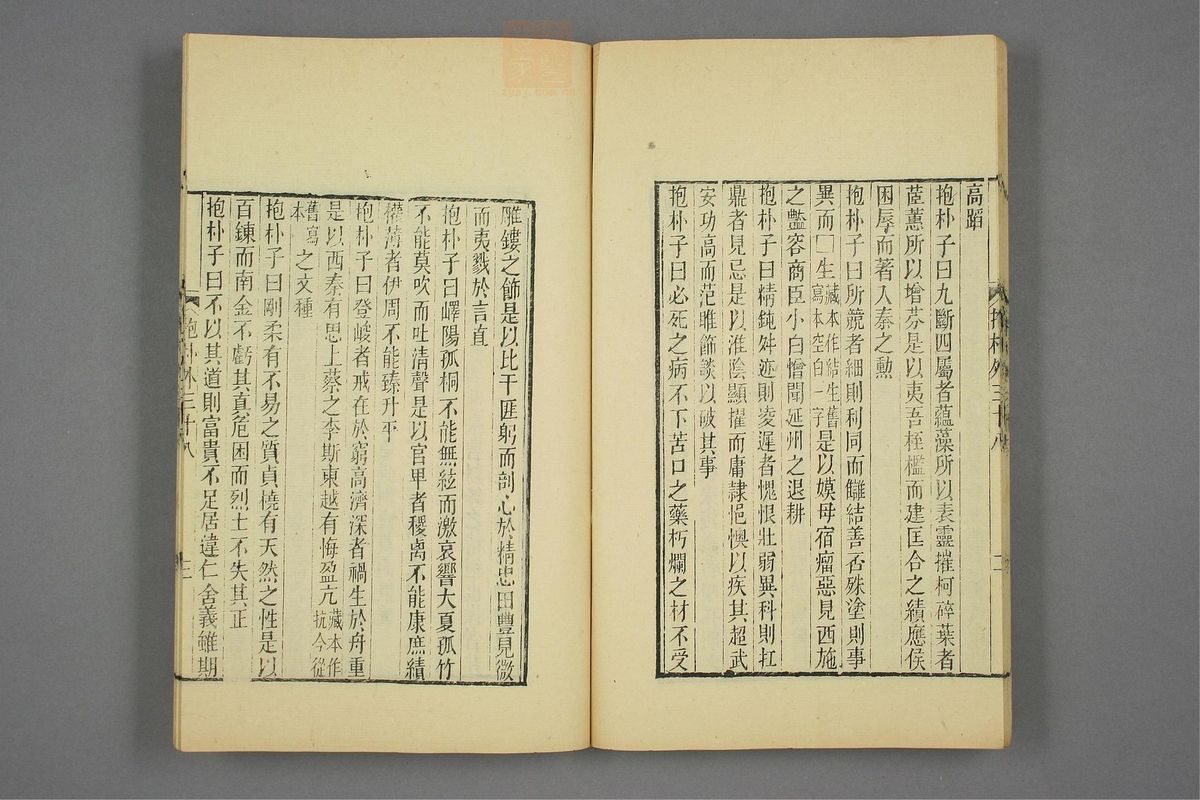 高蹈
抱朴子曰九斷四屬者蘊藻所以表靈摧柯碎葉者
茝蕙所以增芬是以夷吾桎檻而建匡合之績應侯
困辱而著入秦之勲
抱朴子曰所競者細則利同而讎結善否殊塗則事
異而□生藏本作結生舊寫本空白一字是以嫫母宿瘤惡見西施
之豔容商臣小白憎聞延州之退耕
抱朴子曰精鈍舛迹則凌遲者愧恨壯弱異科則扛
鼎者見忌是以淮陰顯擢而庸隷悒懊以疾其超武
安功高而范雎飾談以破其事
抱朴子曰必死之病不下苦口之藥朽爛之材不受
抱朴外三十八 二
雕鏤之飾是以比干匪躬而剖心於精忠田豐見微
而夷戮於言直
抱朴子曰嶧陽孤桐不能無絃而激哀響大夏孤竹
不能莫吹而吐清聲是以官卑者稷离不能康庶績
權薄者伊周不能臻升平
抱朴子曰登峻者戒在於窮高濟深者禍生於舟重
是以西秦有思上蔡之李斯東越有悔盈亢藏本作抗今從
舊寫本之文種
抱朴子曰剛柔有不易之質貞橈有天然之性是以
百鍊而南金不虧其真危困而烈士不失其正
抱朴子曰不以其道則富貴不足居違仁舍義雖期
抱朴外三十八 三